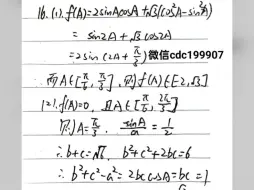 16.(1). f(A)=2sinAcosA+√3(cos²A-sin²A)
= sin2A+√3cos2A
=2sin(2A+π/3) 微信cdc199907
而A∈[π/6, π/3], 则f(A)∈[-2,√3]
(2).f(A)=0, 且A∈[π/6, 2π/3]
则A=π/3. sinA/a=1/2
∴b+c=√6, b²+c²+2bc=6
∴b²+c²-a²=2bc cosA=bc=1